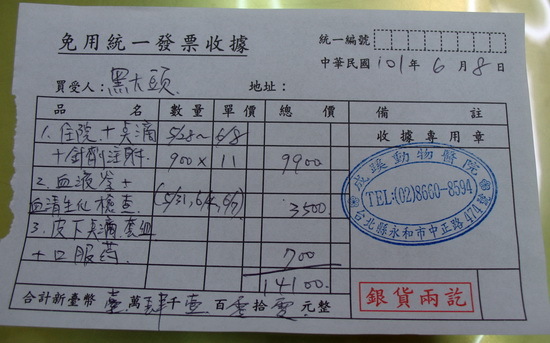 免用統一發票收據
統一編號
中華民國 101 年 6 月 8 日
買受人：黑大頭 地址：
品名 數量 單價 總價 備註
1. 住院+点滴 5/28~ 6/8 收據專用章
+針劑注射. 900 × 11 9900
2. 血液學+
血清生化檢查 (5/31, 6/4, 6/7) 3500
3. 皮下点滴套組
+口服药. 700
14100.
成蹊動物醫院
TEL:(02)8660-8594
台北縣永和市中正路474號
銀貨兩訖
合計新臺幣 壹 萬 肆 千 壹 百 零 拾 零 元整